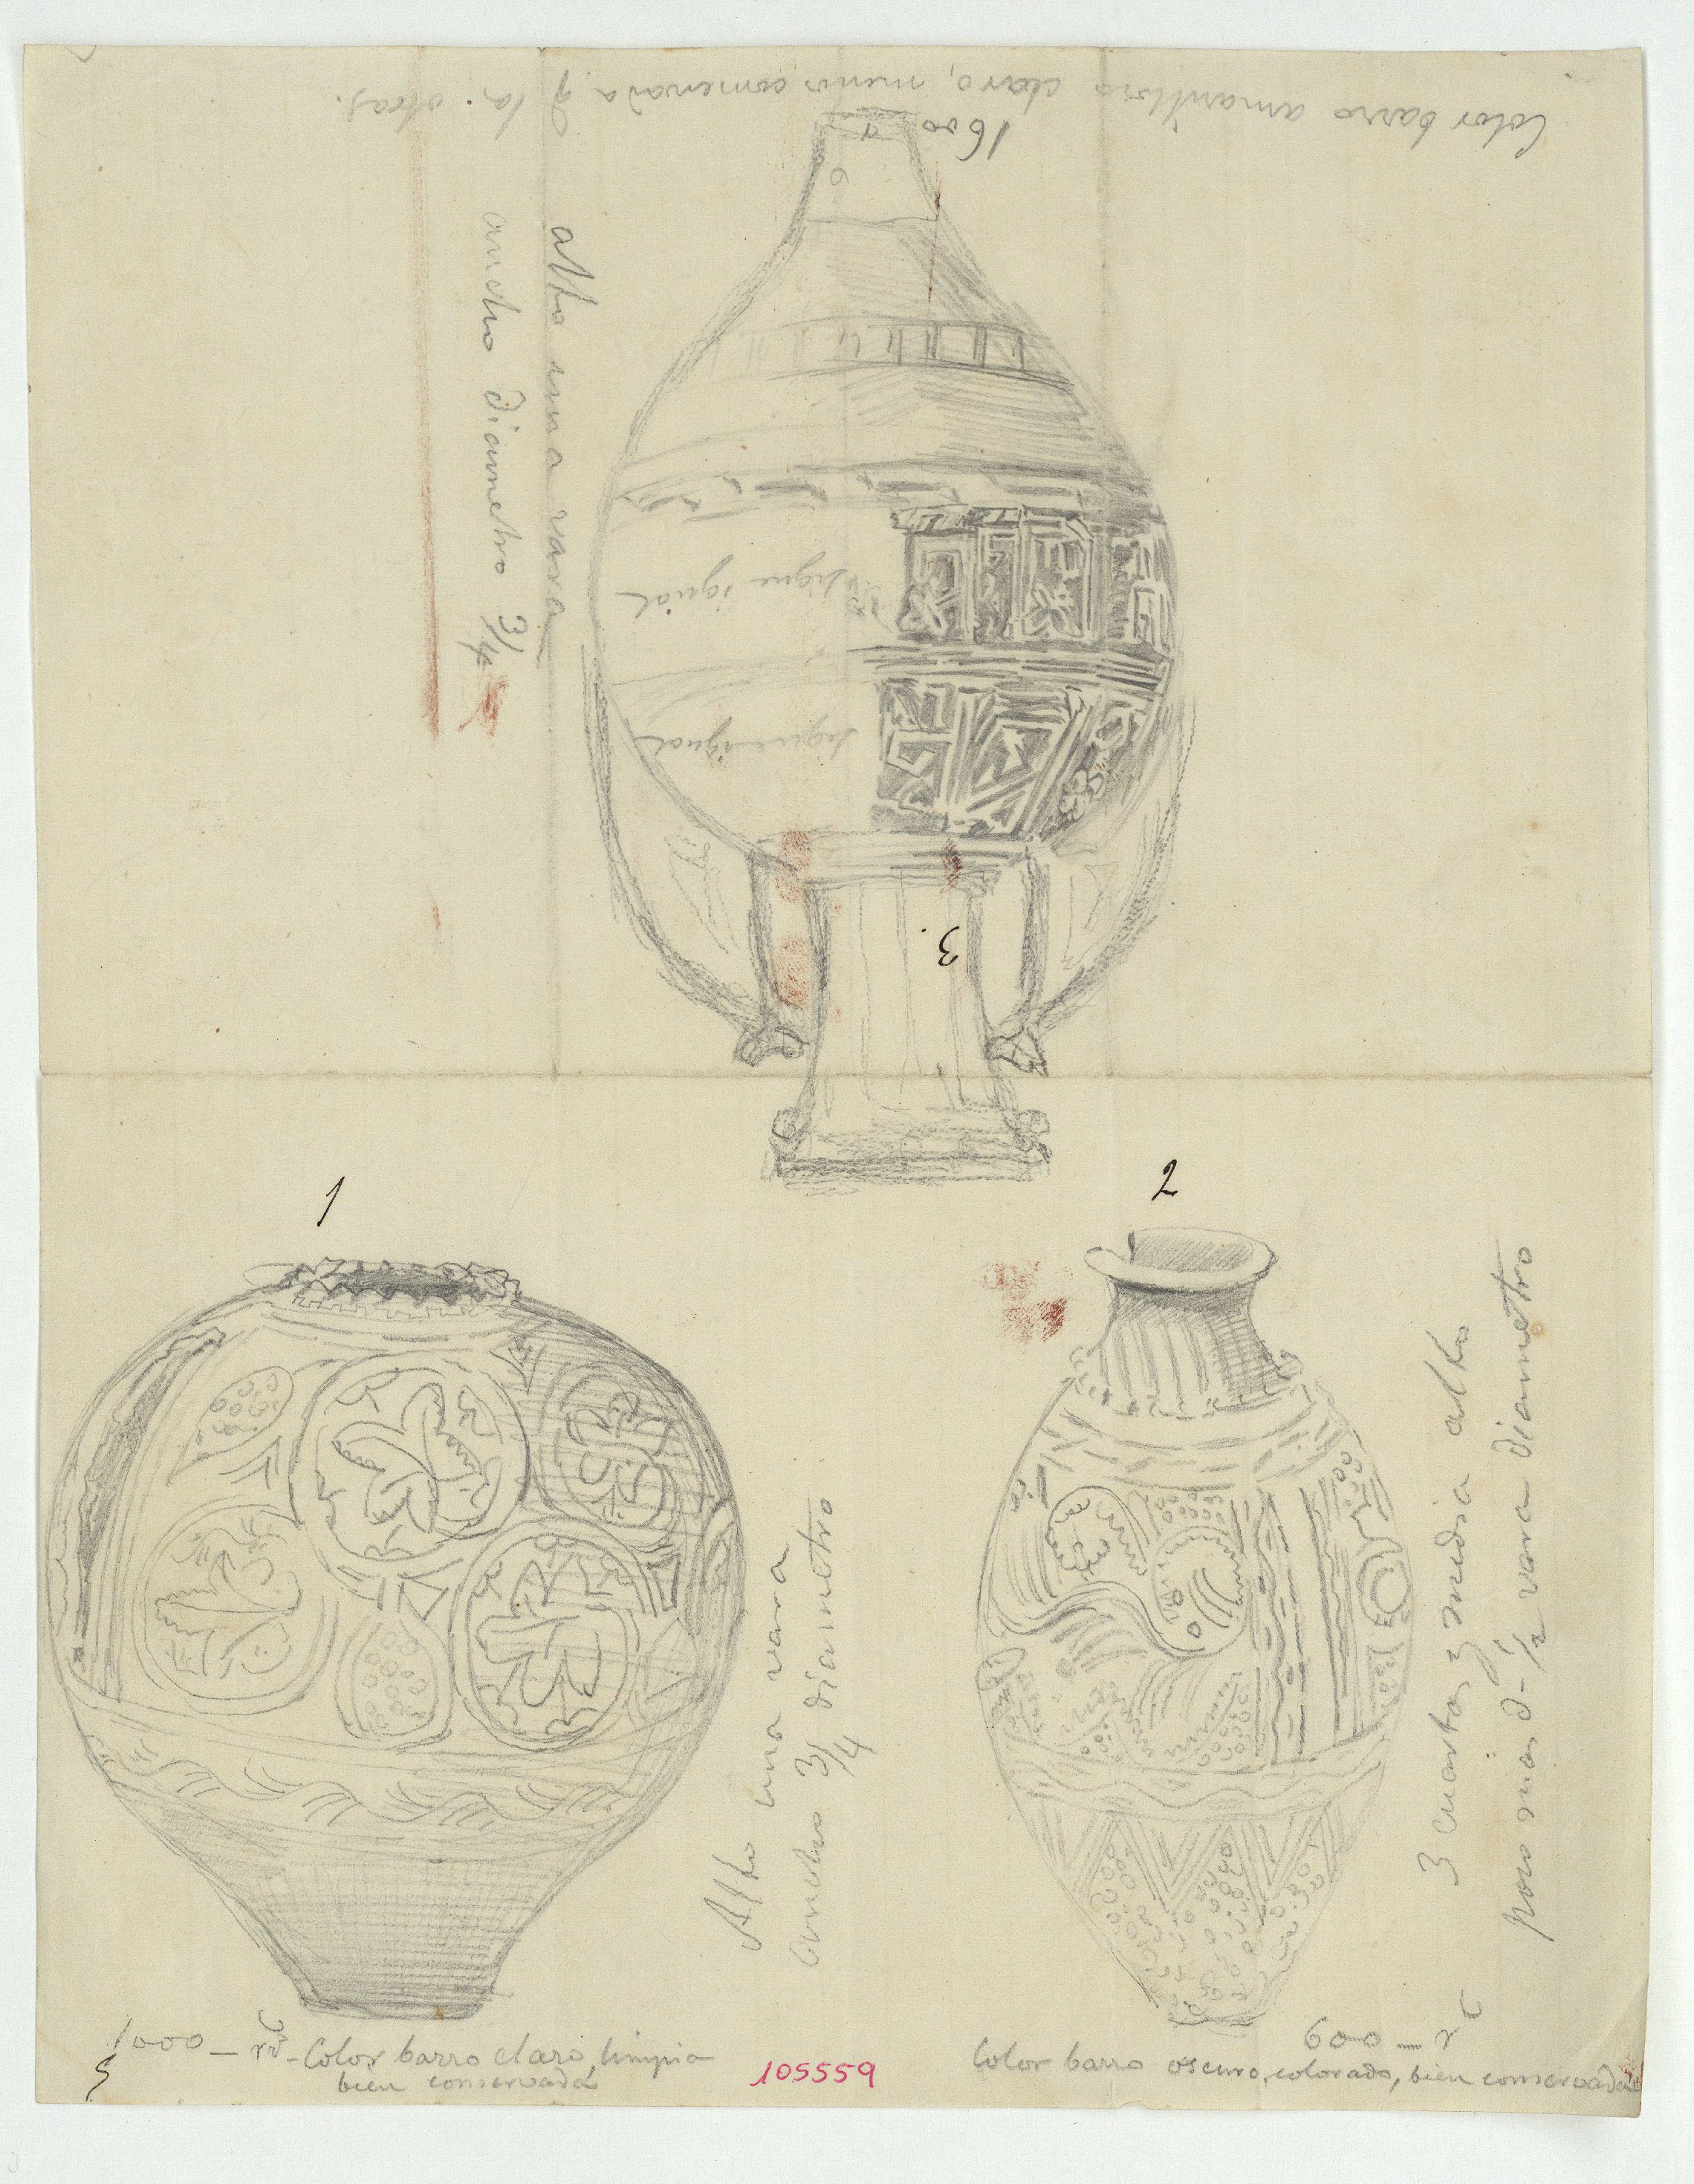 Color barro amarilloso claro, menos conservada q. las otras.
1600
alto una vara
ancho diametro 3/4
sigue igual
sigue igual
3.
1
2
Alto una vara
ancho 3/4 diametro
3 cuartas y media alto
poco mas d- 1/2 vara diametro
1000 — rs - Color barro claro, limpia
bien conservada
105559
600 — rs
Color barro oscuro, colorado, bien conservada